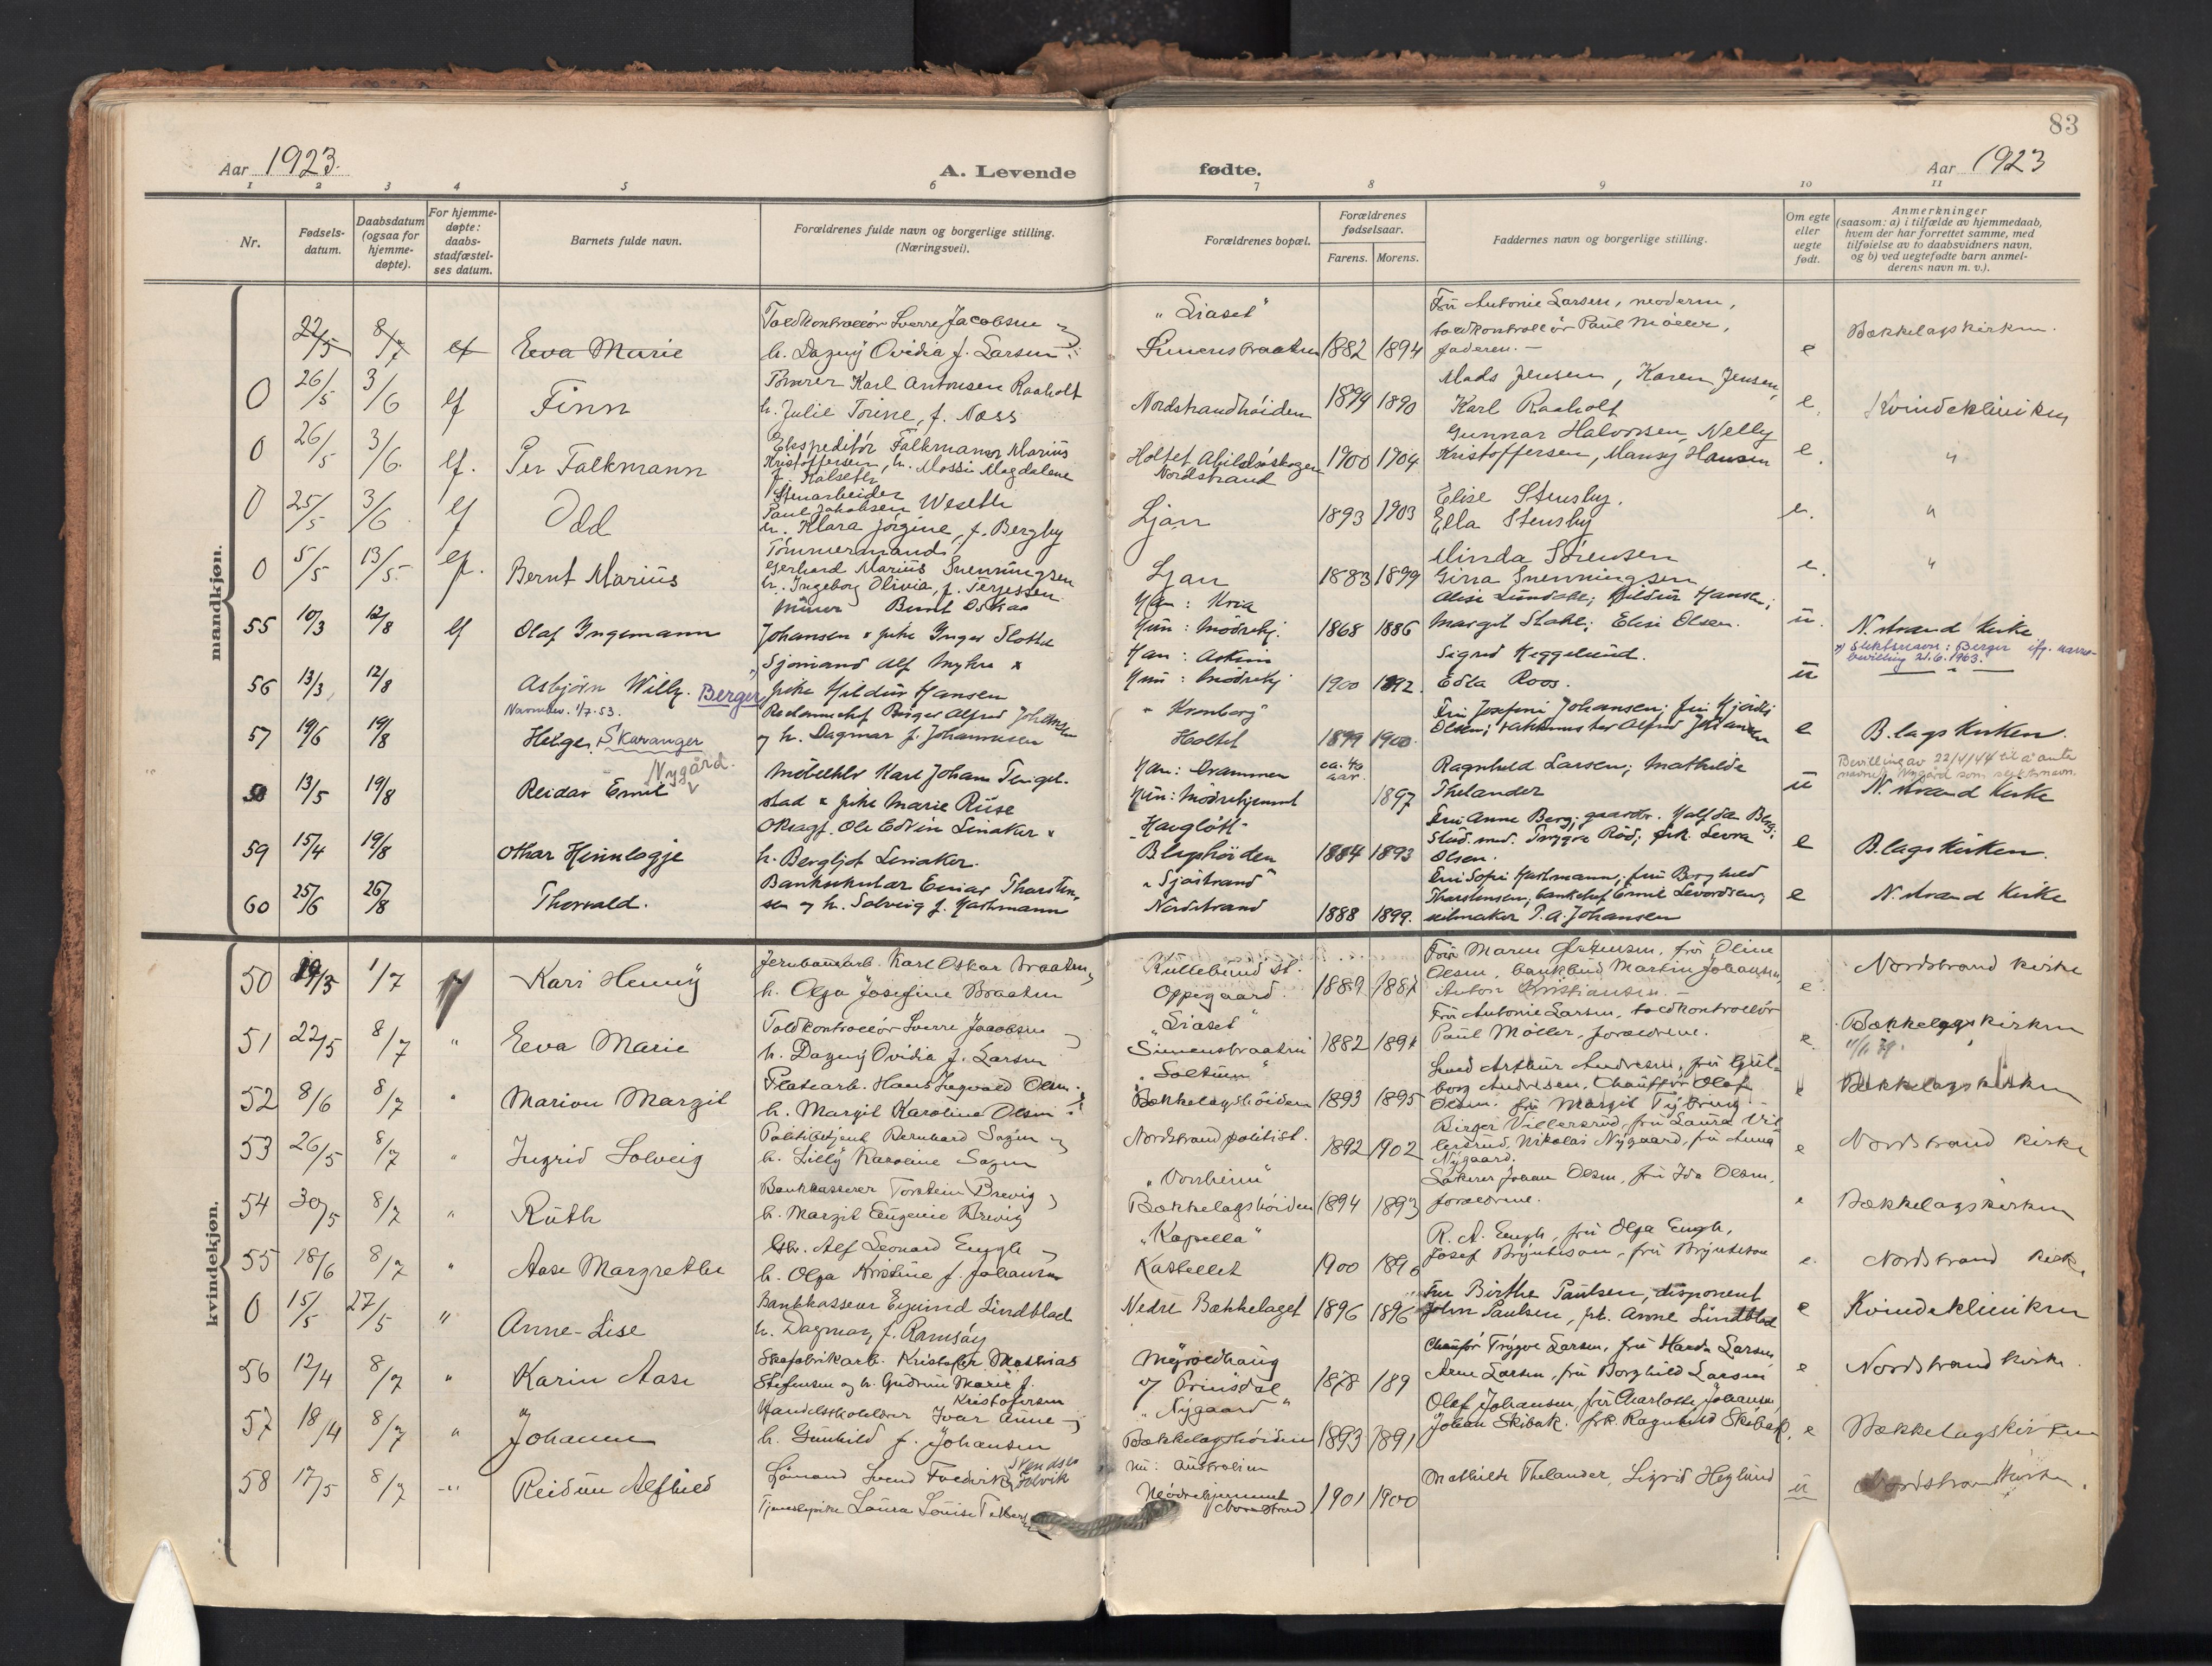 83
Aar 1923.
A. Levende
fødte.
Aar 1923
1 2 3 4 5 6 7 8 9 10 11
Nr.
Fødsels-
datum.
Daabsdatum
(ogsaa for
hjemme-
døpte).
For hjemme-
døpte:
daabs-
stadfæstel-
ses datum.
Barnets fulde navn.
Forældrenes fulde navn og borgerlige stilling.
(Næringsvei).
Forældrenes bopæl.
Forældrenes
fødselsaar.
Farens. Morens.
Faddernes navn og borgerlige stilling.
Om egte
eller
uegte
født.
Anmerkninger
(saasom: a) i tilfælde av hjemmedaab,
hvem der har forrettet samme, med
tilføielse av to daabsvidners navn,
og b) ved uegtefødte barn anmel-
derens navn m. v.).
mandkjøn.
22/5 8/7 ef Eeva Marie
Toldkontrollør Sverre Jacobsen
h. Dagny Ovidia f. Larsen
"Liaset"
Simensbraaten 1882 1894
Fru Antonie Larsen, moderen,
toldkontrollør Paul Møller,
faderen. —
e Bækkelagskirken.
0 26/5 3/6 ef Finn
Karl Antonsen Raaholt
h. Julie Torine, f. Næss
Nordstrandhøiden 1899 1890
Mads Jensen, Karen Jensen,
Karl Raaholt
e. Kvindeklinikken
0 26/5 3/6. ef. Per Falkmann
Ekspeditør Falkmann Marius
Kristoffersen, h. Mossi Magdalene
f. Kalseth
Holtet, Abildsøskogen
Nordstrand 1900 1904
Gunnar Halvorsen, Nelly
Kristoffersen, Mansy Hansen
e. "
0 25/5 3/6 ef Odd
Stenarbeider
Paul Jakobsen Weseth
h. Klara Jörgine, f. Bergby
Ljan 1893 1903
Elise Stensby,
Ella Stensby
e. "
0 5/5 13/5. ef. Bernt Marius
Tömmermand
Gerhard Marius Svenningsen
h. Ingeborg Olivia, f. Terjessen
Ljan 1883 1899
Minda Sørensen
Gina Svenningsen
e. "
55 10/3 12/8 ef Olaf Yngemann
Bernt Oskar
Johansen & pike Inger Slotte
Han: Kria
Hun: Mödrehj. 1868 1886
Alise Lundahl; Hildur Hansen;
Margit Stahl; Elise Olsen.
u. N. strand kirke
56 13/3 12/8 Asbjörn Willy. Berger
Navnbev. 1/7-53.
Sjömand Alf Myhre &
pike Hildur Hansen
Han: Askim
Hun: Mödrehj 1900 1892.
Sigrid Heggelund.
Edla Roos.
u
x) Slektsnavn: Berger ifg. navne-
bevilling 21.6.1963.
57 19/6 19/8 Helge. Skavanger
Reklamechef Birger Alfred Johansen
og h. Dagmar f. Johannesen
"Kronborg"
Holtet 1899 1900.
Fru Josefine Johansen; fru Hjördis
Olsen; Alfred Johansen
e B.lagskirken.
58 13/5 19/8 Reidar Emil Nygård.
Möbelhdlr Karl Johan Tengel-
stad & pike Marie Riise
Han: Drammen ca. 40 aar.
Hun: Mödrehjemmet 1897
Ragnhild Larsen; Mathilde
Thelander
u
Bevilling av 22/4/44 til å anta
navnet Nygård som slektsnavn.
N. strand kirke
59 15/4 19/8 Othar Heinlogje
Ole Edvin Smaker &
h. Bergljot Smaker.
"Haugløtt"
B.lagshöiden 1884 1893
Fru Anne Berg; gaardbr. Halfdan Berg;
Stud. med. Trygve Röd; frk. Levra
Olsen.
e B.lagskirken.
60 25/6 26/8 Thorvald.
Banksekretær Einar Thorsten-
sen og h. Solveig f. Hartmann
"Sjöstrand"
Nordstrand 1888 1899.
Fru Sofie Hartmann; fru Borghild
Thorstensen; bankchef Ernie Levordsen;
seilmaker P. A. Johansen
e N. strand kirke
kvindekjøn.
50 19/3 1/7 Kari Henny
Jernbanearb. Karl Oskar Braaten
h. Olga Josefine Braaten
Kullebund st.
Oppegaard. 1889 1887
Fru Maren Østensen, fru Oline
Olsen, bankbud Martin Johansen,
Anton Kristiansen —
e. Nordstrand kirke
51 22/5 8/7 " Eeva Marie
Toldkontrollør Sverre Jacobsen
h. Dagny Ovidia f. Larsen
"Liaset"
Simensbraaten 1882 1894
Fru Antonie Larsen, toldkontrollör
Paul Møller, forældrene.
e. Bækkelagskirken
52 8/6 8/7 " Marion Margit
Platearb. Hans Ingvald Olsen
h. Margit Karoline Olsen
"Soltun"
Bækkelagshöiden 1893 1895
Arthur Andresen, fru Gul-
borg Andresen, Chauffør Olaf
Olsen. fru Margit Tybring
e Bækkelagskirken
53 26/5 8/7 " Ingrid Solveig
Politibetjent Bernhard Sogn
h. Lilly Karoline Sogn
Nordstrand politist. 1892 1902
Birger Villersrud, fru Laura Vil-
lersrud, Nikolai Nygaard, fru Anna
Nygaard.
e Nordstrand kirke
54 30/5 8/7 " Ruth
Bankkasserer Torstein Brevig
h. Margit Eugenie Brevig
"Vorrheim"
Bækkelagshöiden 1894 1893
Lakerer Johan Olsen, fru Ida Olsen,
forældrene.
e Bækkelagskirken
55 18/6 8/7 " Aase Margrethe
Alf Leonard Engh
h. Olga Kristine f. Johansen
"Kapella"
Kastellet 1900 1896
R. A. Engh, fru Olga Engh,
Josef Bryntesson, fru Bryntesson
e. Nordstrand kirk.
0 15/5 27/5 " Anne-Lise
Bankkasserer Eyvind Lindblad
h. Dagmar, f. Ramsøy
Nedre Bækkelaget 1896 1896
Fru Birthe Paulsen, disponent
John Paulsen, frk. Anne Lindblad
e Kvindeklinikken
56 12/4 8/7 " Karin Aase
Skofabrikarb. Kristoffer Mathias
Steffensen og h. Gudrun Marie f.
Kristofersen
Myrvoldhaug
Prinsdal 1878 189
Chaufför Trygve Larsen, fru Harda Larsen,
Arne Larsen, fru Borghild Larsen
e Nordstrand kirke.
57 18/4 8/7 " Johanne
Ivar Aune
h. Gunhild f. Johansen
"Nygaard"
Bækkelagshöiden 1893 1891
Olaf Johansen, fru Charlotte Johansen,
Johan Skibak. frk. Ragnhild Skibak.
e Bækkelagskirken
58 17/5 8/7 " Reidun Alfhild
Sjömand Svend Fredrik Svendsen Folvik
Tjenestepike Laura Louise
nu: Australien
Mødrehjemmet
Nordstrand 1901 1900
Mathilde Thelander, Sigrid Heglund
u Nordstrand kirke.